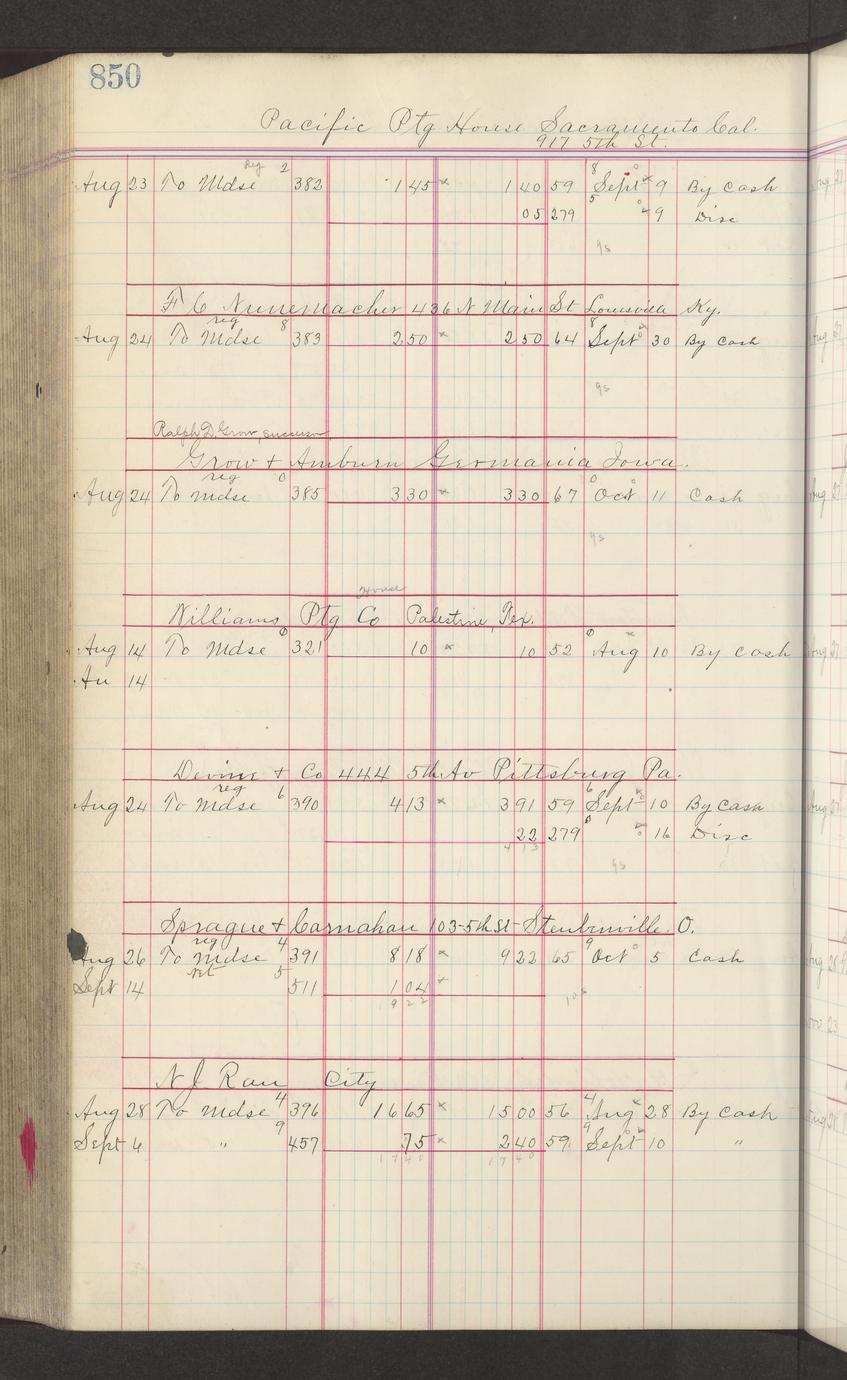 850
Pacific Ptg House Sacramento Cal.
917 5th St.
Reg 2
Aug 23 To Mdse 382 1 45 x 1 40 59 8 Sept 9 By Cash
05 279 5 9 Disc
9s
F C Nunemacher 436 N Main St Louisville Ky.
reg 8
Aug 24 To Mdse 383 2 50 x 2 50 64 8 Sept 30 By Cash
9s
Ralph D. Grow, successor
Grow & Amburn Germania Iowa.
reg 0
Aug 24 To Mdse 385 3 30 x 3 30 67 0 Oct 11 Cash
9s
House
Williams Ptg Co Palestine, Tex.
Aug 14 To Mdse 0 321 10 x 10 52 0 Aug 10 By Cash
Au 14
Devine & Co 444 5th Av Pittsburg Pa.
reg 6
Aug 24 To Mdse 390 4 13 x 3 91 59 6 Sept 10 By Cash
22 279 0 16 Disc
4 13
9s
Sprague & Carnahan 103-5th St Steubinville. O.
reg 4
Aug 26 To Mdse 391 8 18 x 9 22 65 9 Oct 5 Cash
Sept 14 5 511 1 04 x
9 2 2
10s
N J Rau City
Aug 28 To Mdse 4 396 16 65 x 15 00 56 4 Aug 28 By Cash
Sept 6 " 9 457 75 x 2 40 59 9 Sept 10 "
1 7 4 0 1 7 4 0